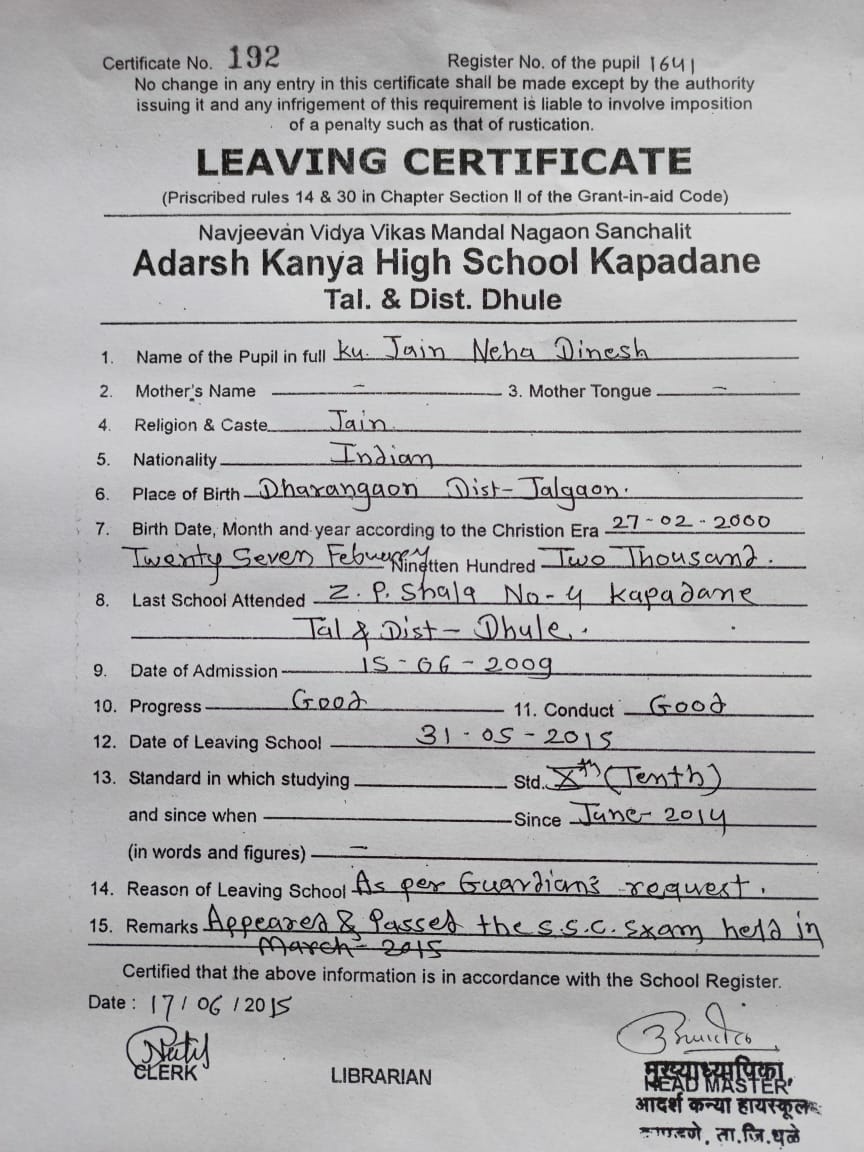 Certificate No. 192 Register No. of the pupil 1641
No change in any entry in this certificate shall be made except by the authority
issuing it and any infrigement of this requirement is liable to involve imposition
of a penalty such as that of rustication.
LEAVING CERTIFICATE
(Priscribed rules 14 & 30 in Chapter Section II of the Grant-in-aid Code)
Navjeevan Vidya Vikas Mandal Nagaon Sanchalit
Adarsh Kanya High School Kapadane
Tal. & Dist. Dhule
1. Name of the Pupil in full Ku. Jain Neha Dinesh
2. Mother's Name – 3. Mother Tongue –
4. Religion & Caste Jain
5. Nationality Indian
6. Place of Birth Dharangaon Dist- Jalgaon.
7. Birth Date, Month and year according to the Christion Era 27-02-2000
Twenty Seven Febuerey Ninetten Hundred Two Thousand.
8. Last School Attended Z. P. Shala No-4 Kapadane
Tal & Dist- Dhule.
9. Date of Admission 15-06-2009
10. Progress Good 11. Conduct Good
12. Date of Leaving School 31-05-2015
13. Standard in which studying Std. Xth (Tenth)
and since when Since June-2014
(in words and figures) –
14. Reason of Leaving School As per Guardian's request.
15. Remarks Appeared & Passed the S.S.C. Exam held in
March-2015
Certified that the above information is in accordance with the School Register.
Date : 17/06/2015
CLERK LIBRARIAN HEAD MASTER
मुख्याध्यापिका
आदर्श कन्या हायस्कूल
ता.जि.धुळे